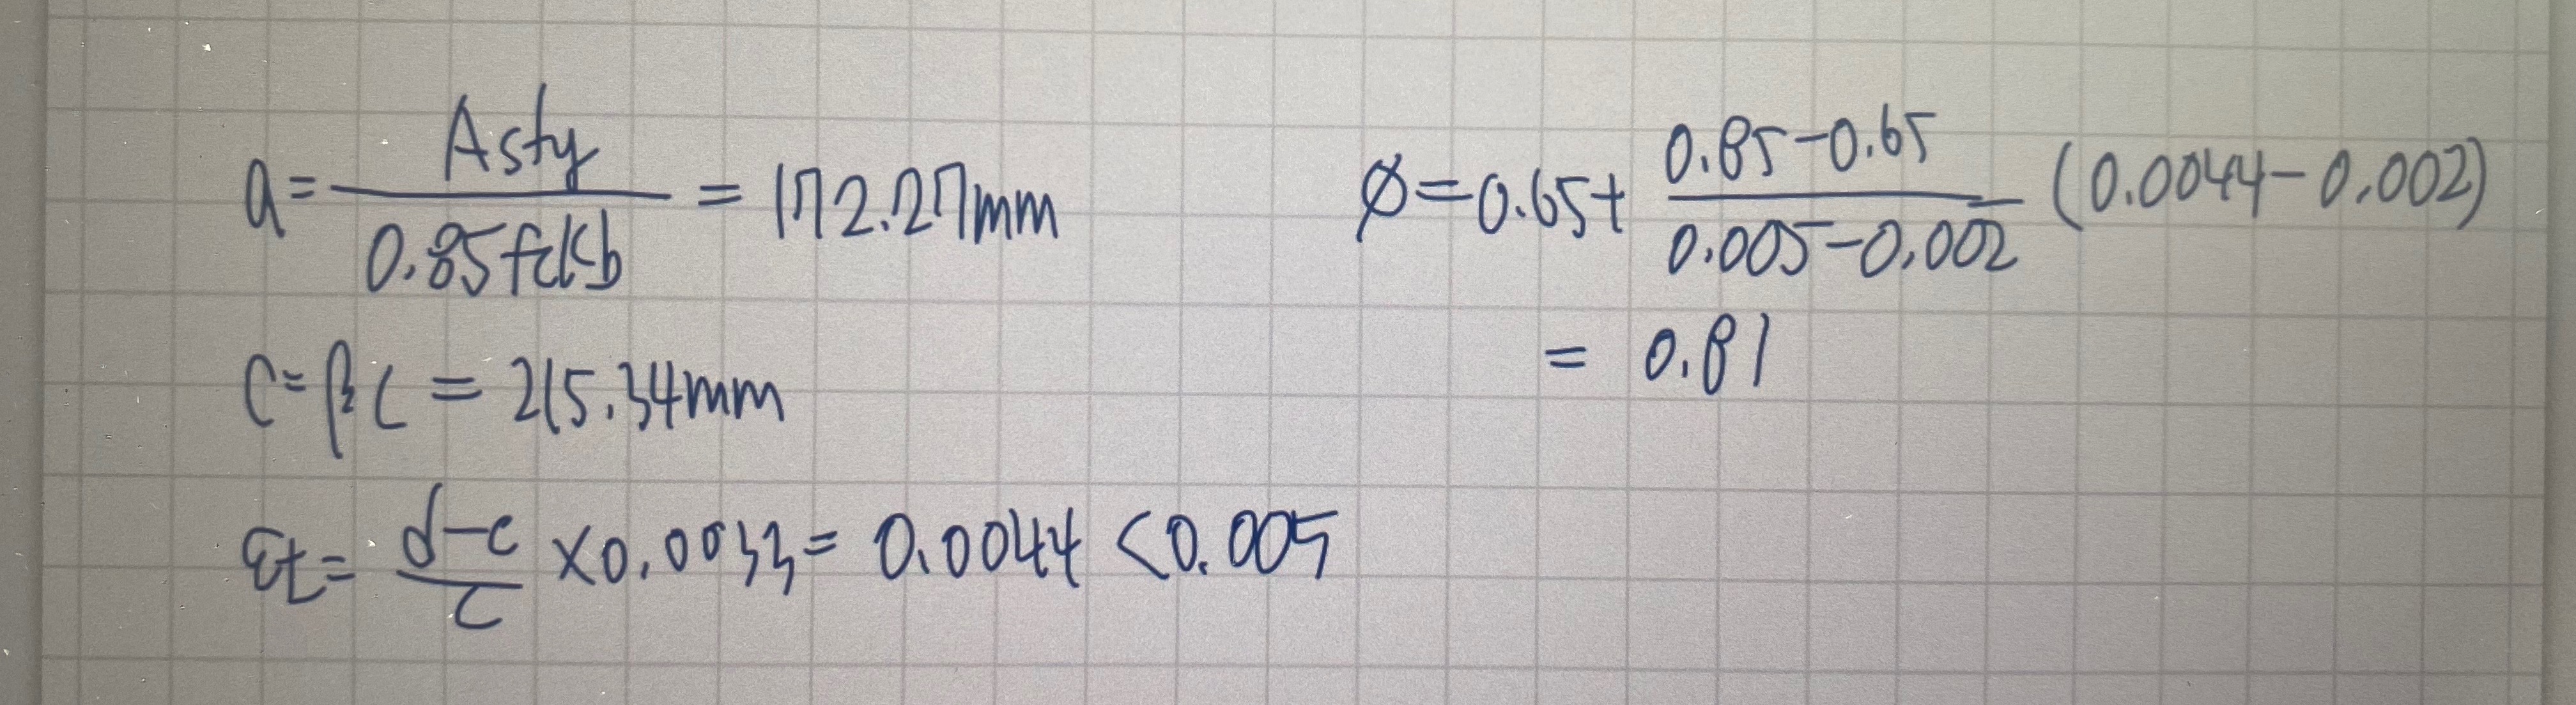 a = Asfy / 0.85fckb = 172.27mm
C = βc = 215.34mm
εt = d-c / c × 0.0033 = 0.0044 < 0.005
ø = 0.65 + 0.85-0.65 / 0.005-0.002 (0.0044-0.002)
= 0.81